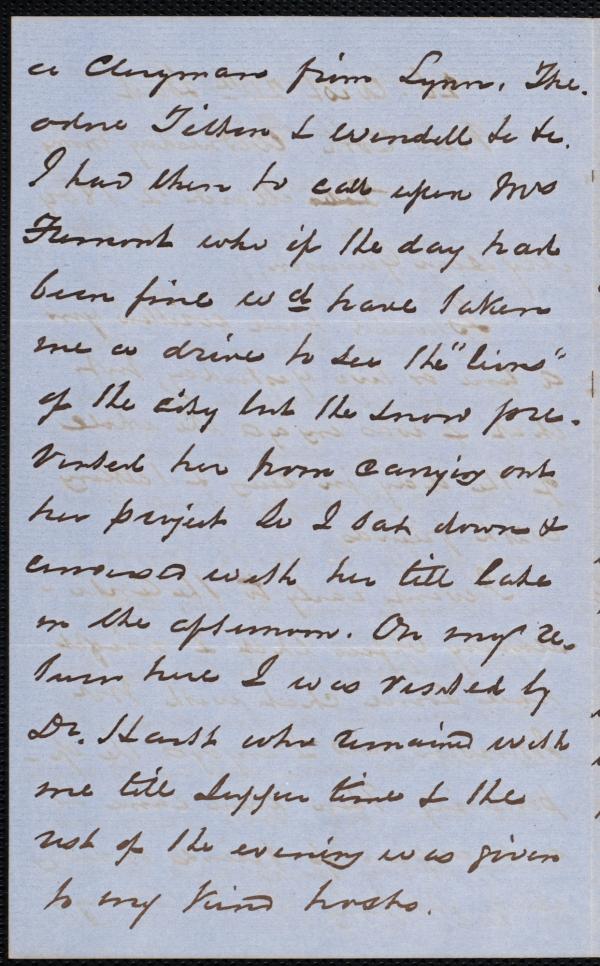 a Clergyman from Lynn, The-
odore Tilton & Wendell &c &c.
I had then to call upon Mrs
Fremont who if the day had
been fine wd have taken
me a drive to see the "lions"
of the city but the snow pre-
vented her from carrying out
her project So I sat down &
conversed with her till late
in the afternoon. On my re-
turn here I was visited by
Dr. who remained with
me till supper time & the
rest of the evening was given
to my kind hosts.